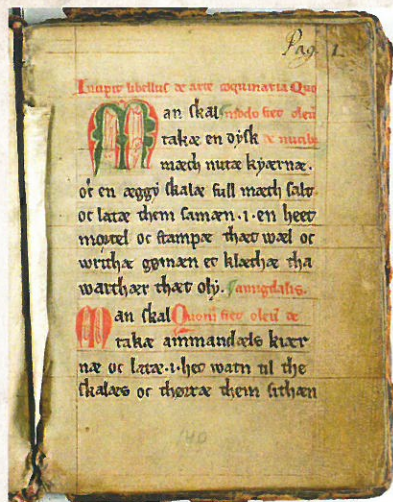 Pag. 1.
Incipit libellus de arte coquinaria Quo
Man skal modo fiet oleū
takæ en dysk de nucibꝫ
mæth nutæ kyærnæ.
oc en æggy skalæ full mæth salt
oc latæ them samæn .i. en heet
mortel oc stampæ thæt wæl oc
writhæ gømæn et klæthæ tha
warthær thæt oly. amigdalis.
Man skal Quomō fiet oleū de
takæ ammandæls kiær
næ oc latæ .i. het watn til the
skalæs oc thørræ them sithæn
140